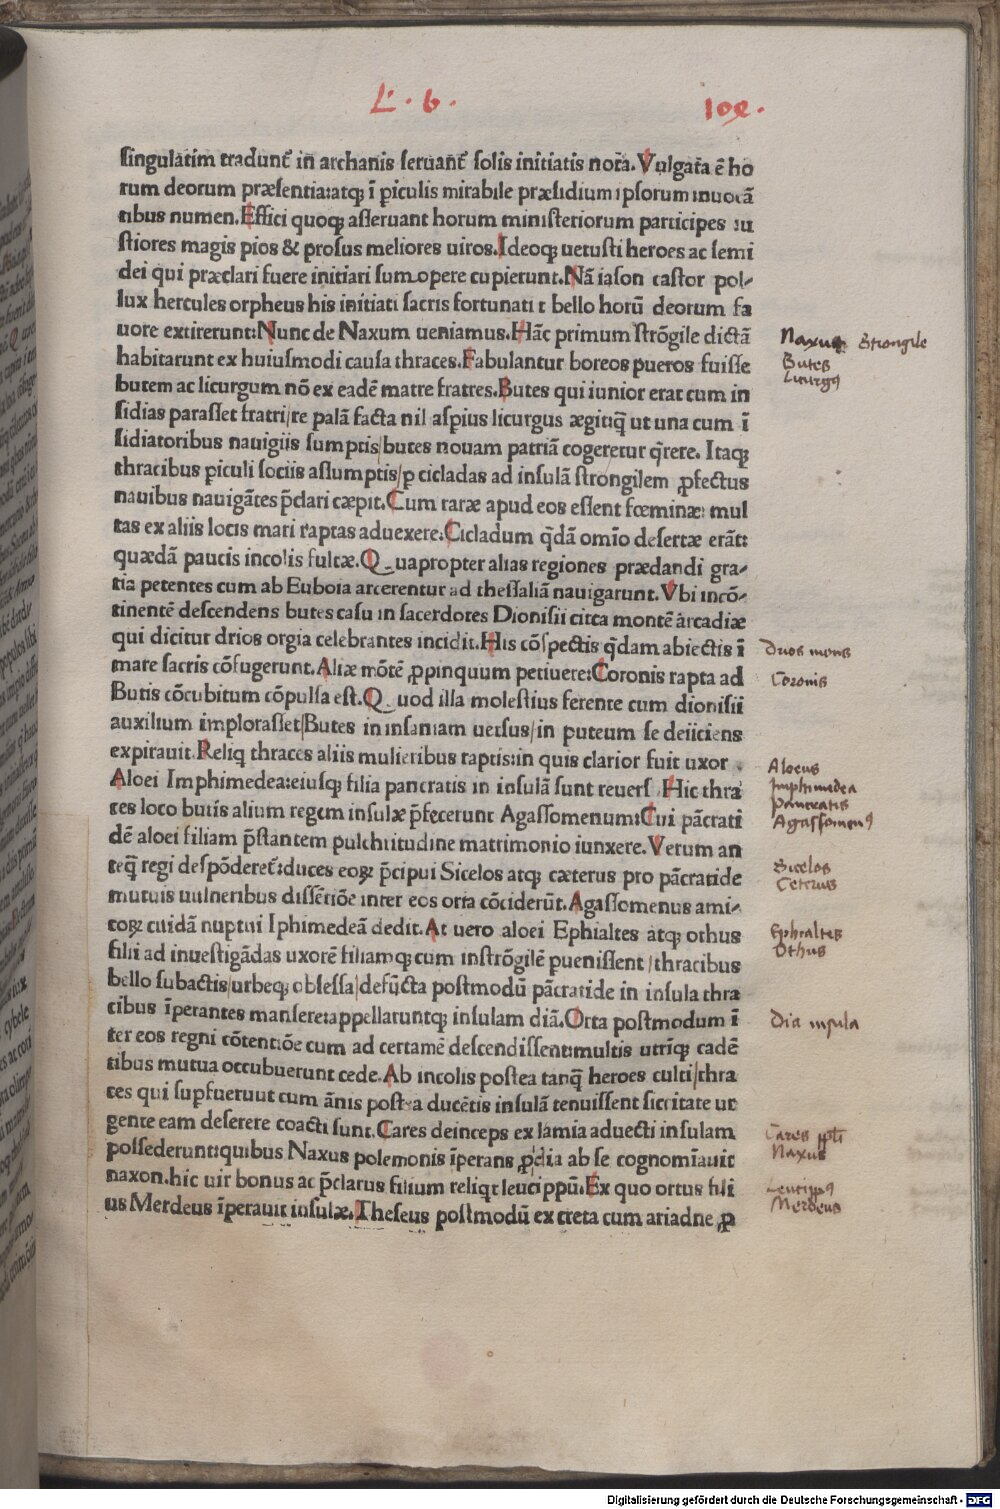 L. 6.
109.
singulatim tradunt̄ in archanis seruant̄ solis initiatis nota. Vulgata ē ho
rum deorum præsentia: atq; ī piculis mirabile præsidium ipsorum inuocā
tibus numen. Effici quoq; asseruant horum ministeriorum participes iu
stiores magis pios & prosus meliores uiros. Ideoq; uetusti heroes ac semi
dei qui præclari fuere initiari sumopere cupierunt. Nā iason castor pol⸗
lux hercules orpheus his initiati sacris fortunati ī bello horū deorum fa
uore extiterunt: Nunc de Naxum ueniamus. Hāc primum strōgile dictā
habitarunt ex huiusmodi causa thraces. Fabulantur boreos pueros fuisse
butem ac licurgum nō ex eadē matre fratres. Butes qui iunior erat cum in
sidias parasset fratri/re palā facta nil aspius licurgus ægitiq̄ ut una cum ī
sidiatoribus nauigiis sumptis/butes nouam patriā cogeretur q̄rere. Itaq;
thracibus piculi sociis assumptis/p cicladas ad insulā strongilem pfectus
nauibus nauigātes p̄dari cæpit. Cum raræ apud eos essent fœminæ: mul
tas ex aliis locis mari raptas aduexere. Cicladum q̄dā omīo desertæ erāt:
quædā paucis incolis fultæ. Quapropter alias regiones prædandi gra⸗
tia petentes cum ab Euboia arcerentur ad thessaliā nauigarunt. Vbi incō⸗
tinentē descendens butes casu in sacerdotes Dionisii citca montē arcadiæ
qui dicitur drios orgia celebrantes incidit. His cōspectis q̄dam abiectis ī
mare sacris cōfugerunt. Aliæ mōtē ppinquum petiuere: Coronis rapta ad
Butis cōcubitum cōpulsa est. Quod illa molestius ferente cum dionisii
auxilium implorasset/Butes in insaniam uersus/in puteum se deiiciens
expirauit. Reliq thraces aliis mulieribus raptis: in quis clarior fuit uxor
Aloei Imphimedea: eiusq; filia pancratis in insulā sunt reuersi. Hic thra
ces loco butis alium regem insulæ p̄fecerunt Agassomenum: Cui pācrati
dē aloei filiam p̄stantem pulchritudine matrimonio iunxere. Verum an
teq̄ regi despōderet̄: duces eoꝝ p̄cipui Sicelos atq; cæterus pro pācratide
mutuis uulneribus dissētiōe inter eos orta cōciderūt. Agassomenus ami⸗
coꝝ cuidā nuptui Iphimedeā dedit. At uero aloei Ephialtes atq; othus
filii ad inuestigādas uxorē filiamq; cum instrōgilē puenissent/thracibus
bello subactis/urbeq; obsessa/defūcta postmodū pācratide in insula thra
cibus īperantes mansere: appellaruntq; insulam diā. Orta postmodum ī
ter eos regni cōtentiōe cum ad certamē descendissent: multis utrīq; cadē
tibus mutua occubuerunt cede. Ab incolis postea tanq̄ heroes culti/thra
ces qui supfuerunt cum ānis postea ducētis insulā tenuissent siccitate ur
gente eam deserere coacti sunt. Cares deinceps ex lamia aduecti insulam
possederunt: quibus Naxus polemonis īperans p dia ab se cognomīauit
naxon. hic uir bonus ac p̄clarus filium reliqt leucippū. Ex quo ortus fili
us Merdeus īperauit insulæ. Theseus postmodū ex creta cum ariadne p
Naxus Strongile
Butes
Licurgꝰ
Druos mons
Coronis
Aloeus
Imphimedea
pancratis
Agassomenꝰ
Sicelos
Ceterus
Ephialtes
Othus
Dia insula
Cares
Naxus
Leucippꝰ
Merdeus
Digitalisierung gefördert durch die Deutsche Forschungsgemeinschaft - DFG